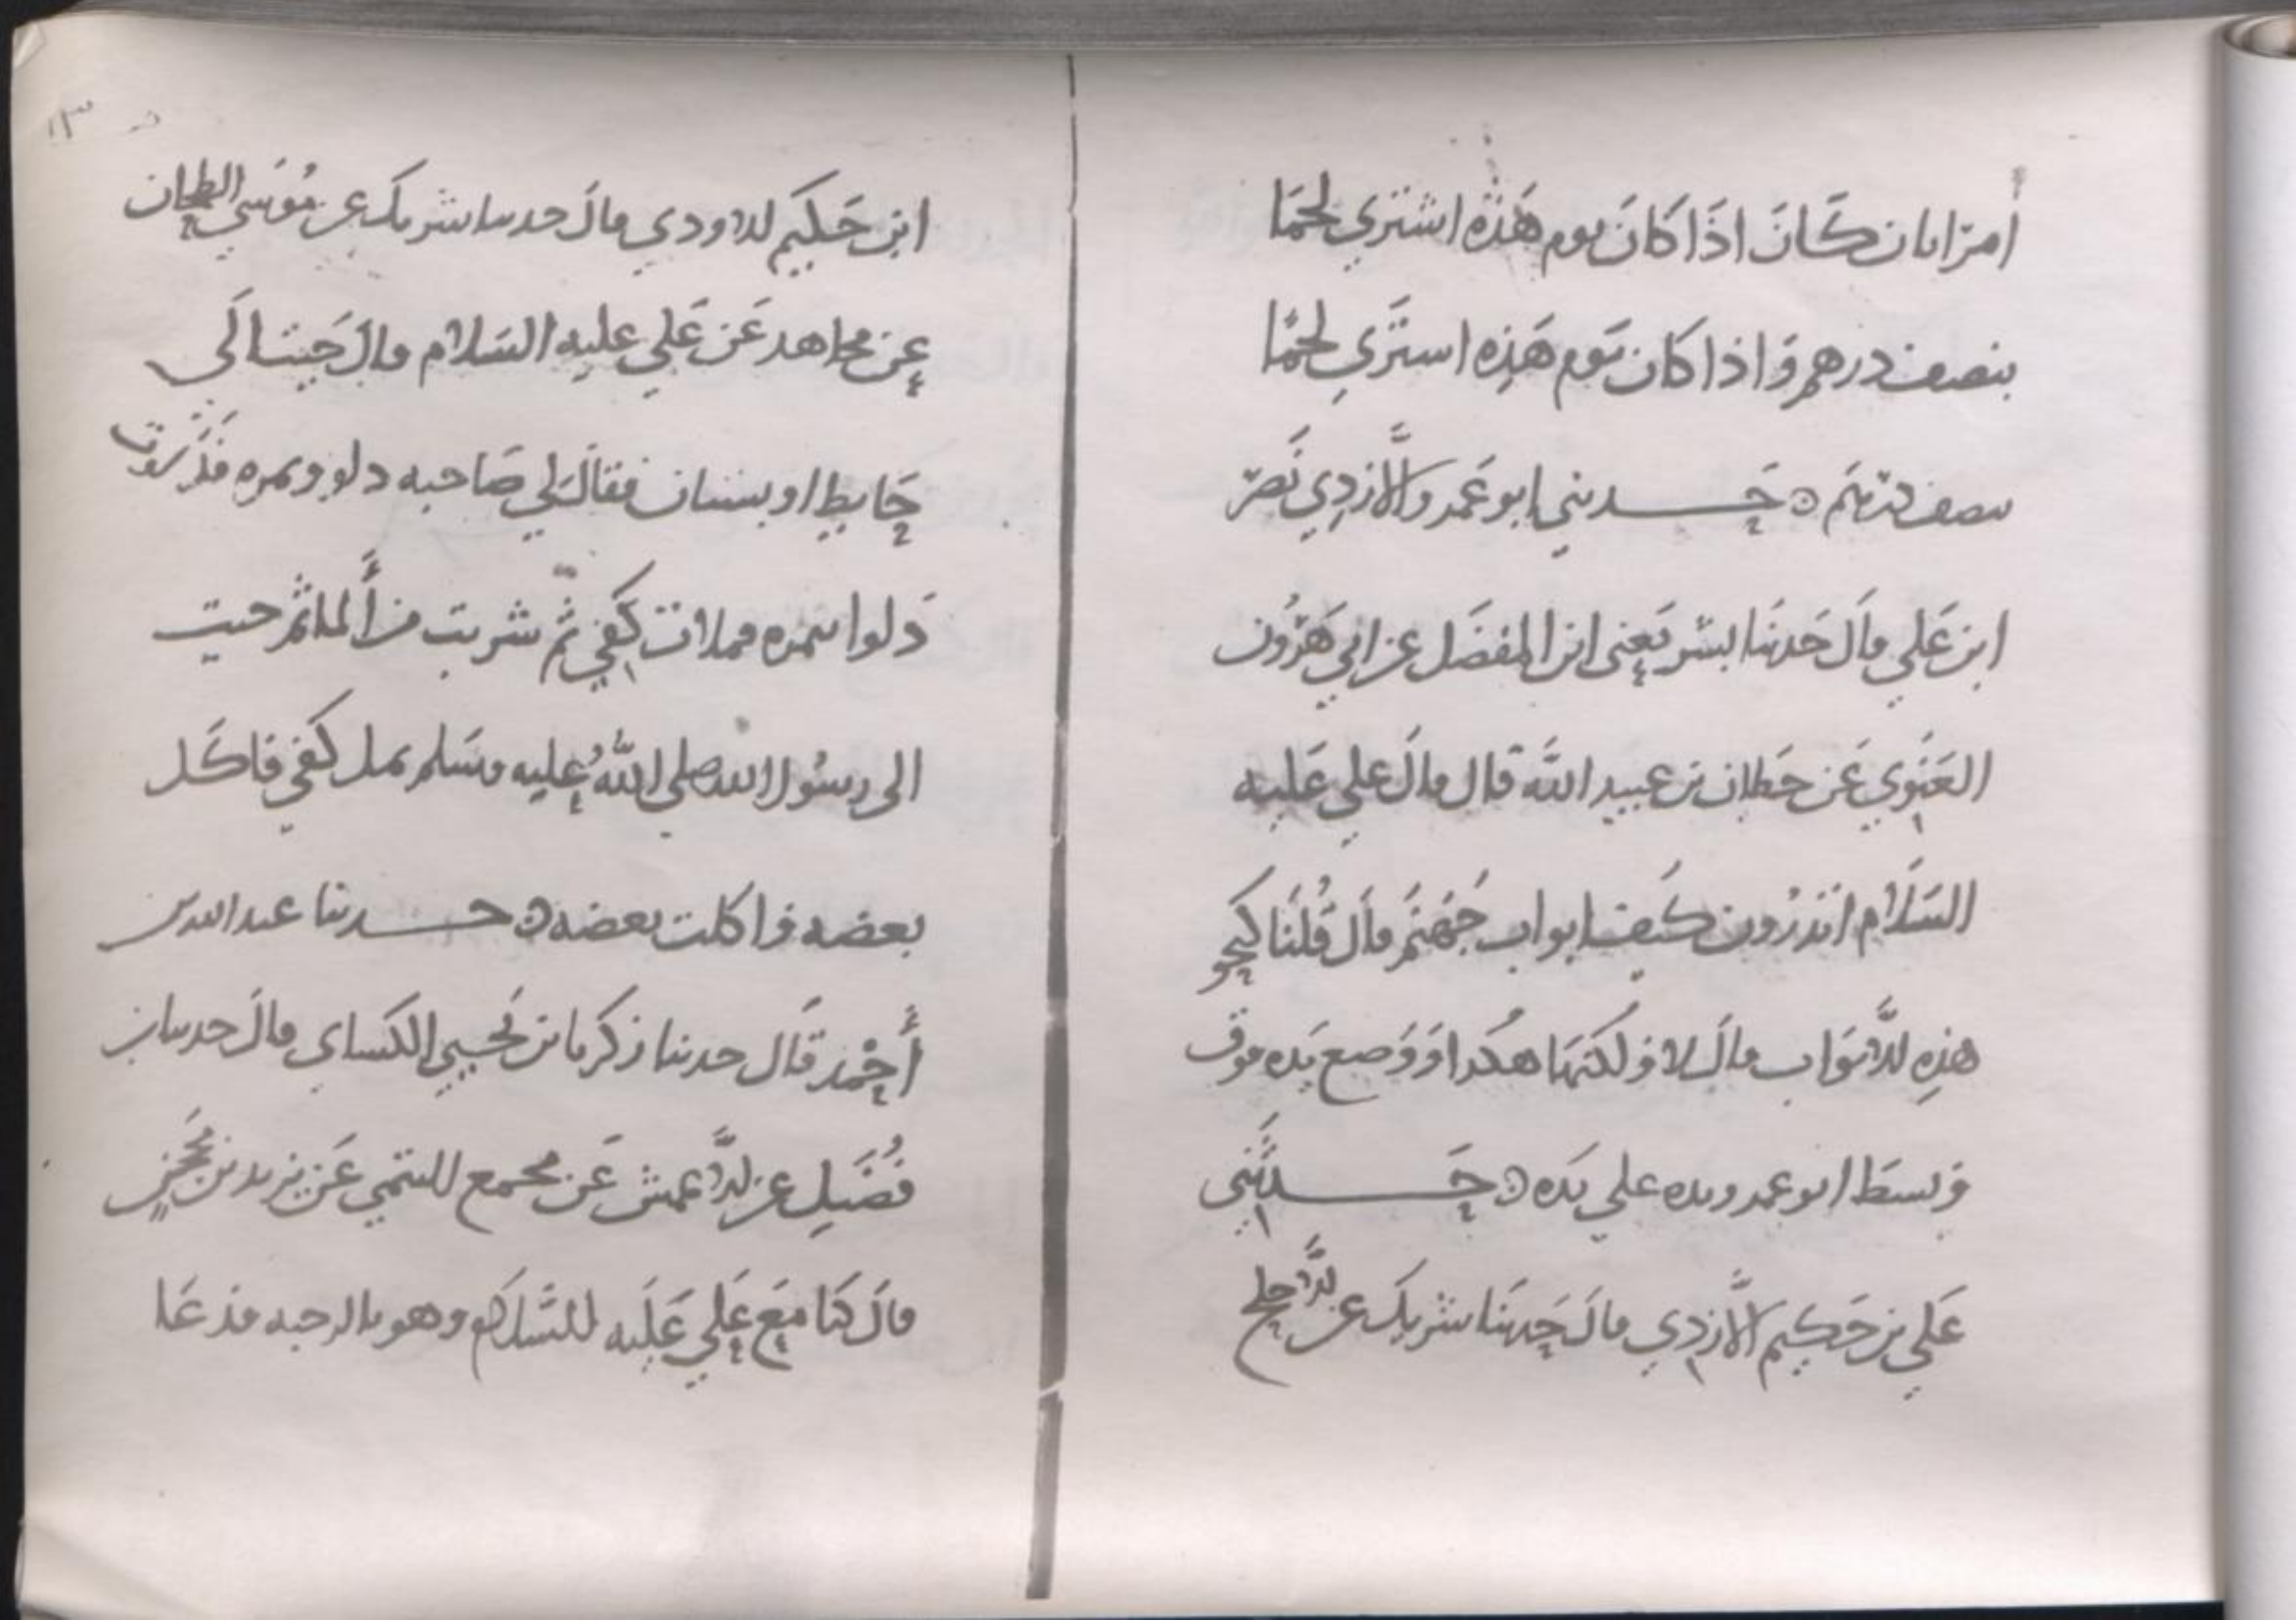 امرأتان كَانَ اذَا كَانَ يوم هَذه اشتري لحمَا
بنصف درهم وَاذا كان يَوم هَذِه اشترَي لحمًا
بنصف درهَم ⊙ حَــدثني ابو عَمرو الأَزدِي نَصر
ابن عَلي قالَ حَدثنَا بشر يَعني ابن المفضَل عن ابي هَرُون
الغَنَوي عَن حَطان بن عبيد الله قال قالَ علي عَليه
السَلَام اتدرُون كَيف ابواب جَهَنَم قالَ قُلنَا كنحو
هذِه الأَبوَاب قالَ لا وَلكنهَا هكذا وَوَضع يَده فوق
وَبسَط ابو عمرو يده علي يَده ⊙ حَــدثَني
عَلي بن حَكيم الأَزدِي قالَ حَدثنَا شريك عن الأَجلح
١٣
ابن حَكيم الاودي قالَ حدثنا شريك عن مُوسَي الطحان
عن مجاهد عَن عَلي عليه السَلام قالَ جَيت الَي
حَايط او بستان فقالَ لي صَاحبه دلو وتمره فدَلَوت
دَلوا بتمره فملات كَفي ثم شربت من ألما ثم جيت
الى رسُول الله صلي اللهُ عليه وسَلم بمل كَفي فاكَل
بعضه واكلت بعضه ⊙ حــدثنا عبد الله بن
أَحْمد قَال حدثنا زكريا بن يَحيي الكسَاي قالَ حدثنا ابن
فُضَيل عن الأَعمش عَن مجمع التيمي عَن يزيد بن مَحجن
قالَ كنَا مَع عَلي عَلَيه السَّلَام وهو بالرحبه فدعَا